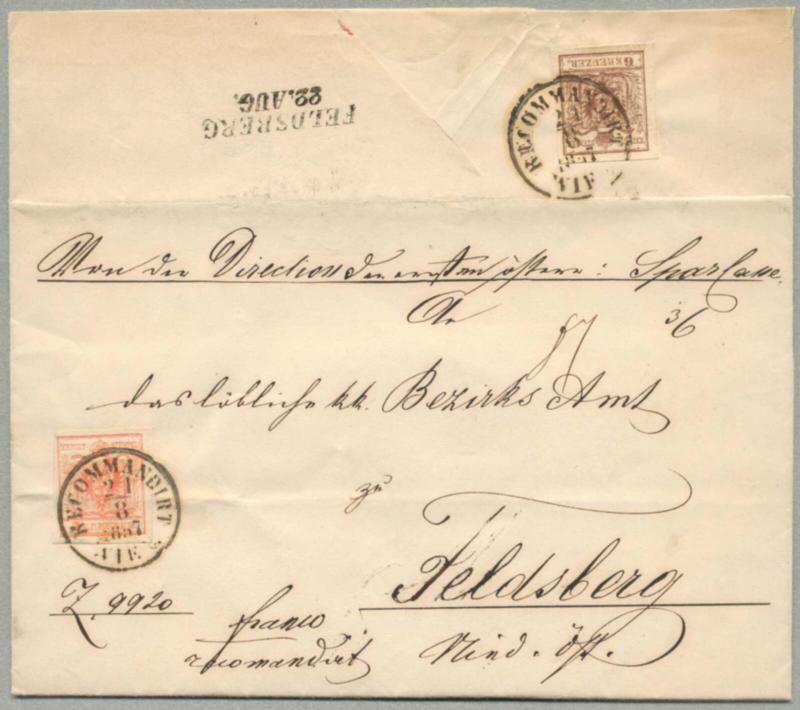 FELDSBERG
22. AUG.
6 KREUZER
RECOMMANDIRT
21
8
1857
WIEN
Von der Direction der ersten österr: Sparcasse.
An
36
das löbliche kk. Bezirks Amt
zu
RECOMMANDIRT
21
8
1857
WIEN
Feldsberg
Z. 9920
franco
recomandirt
Nied. öst.